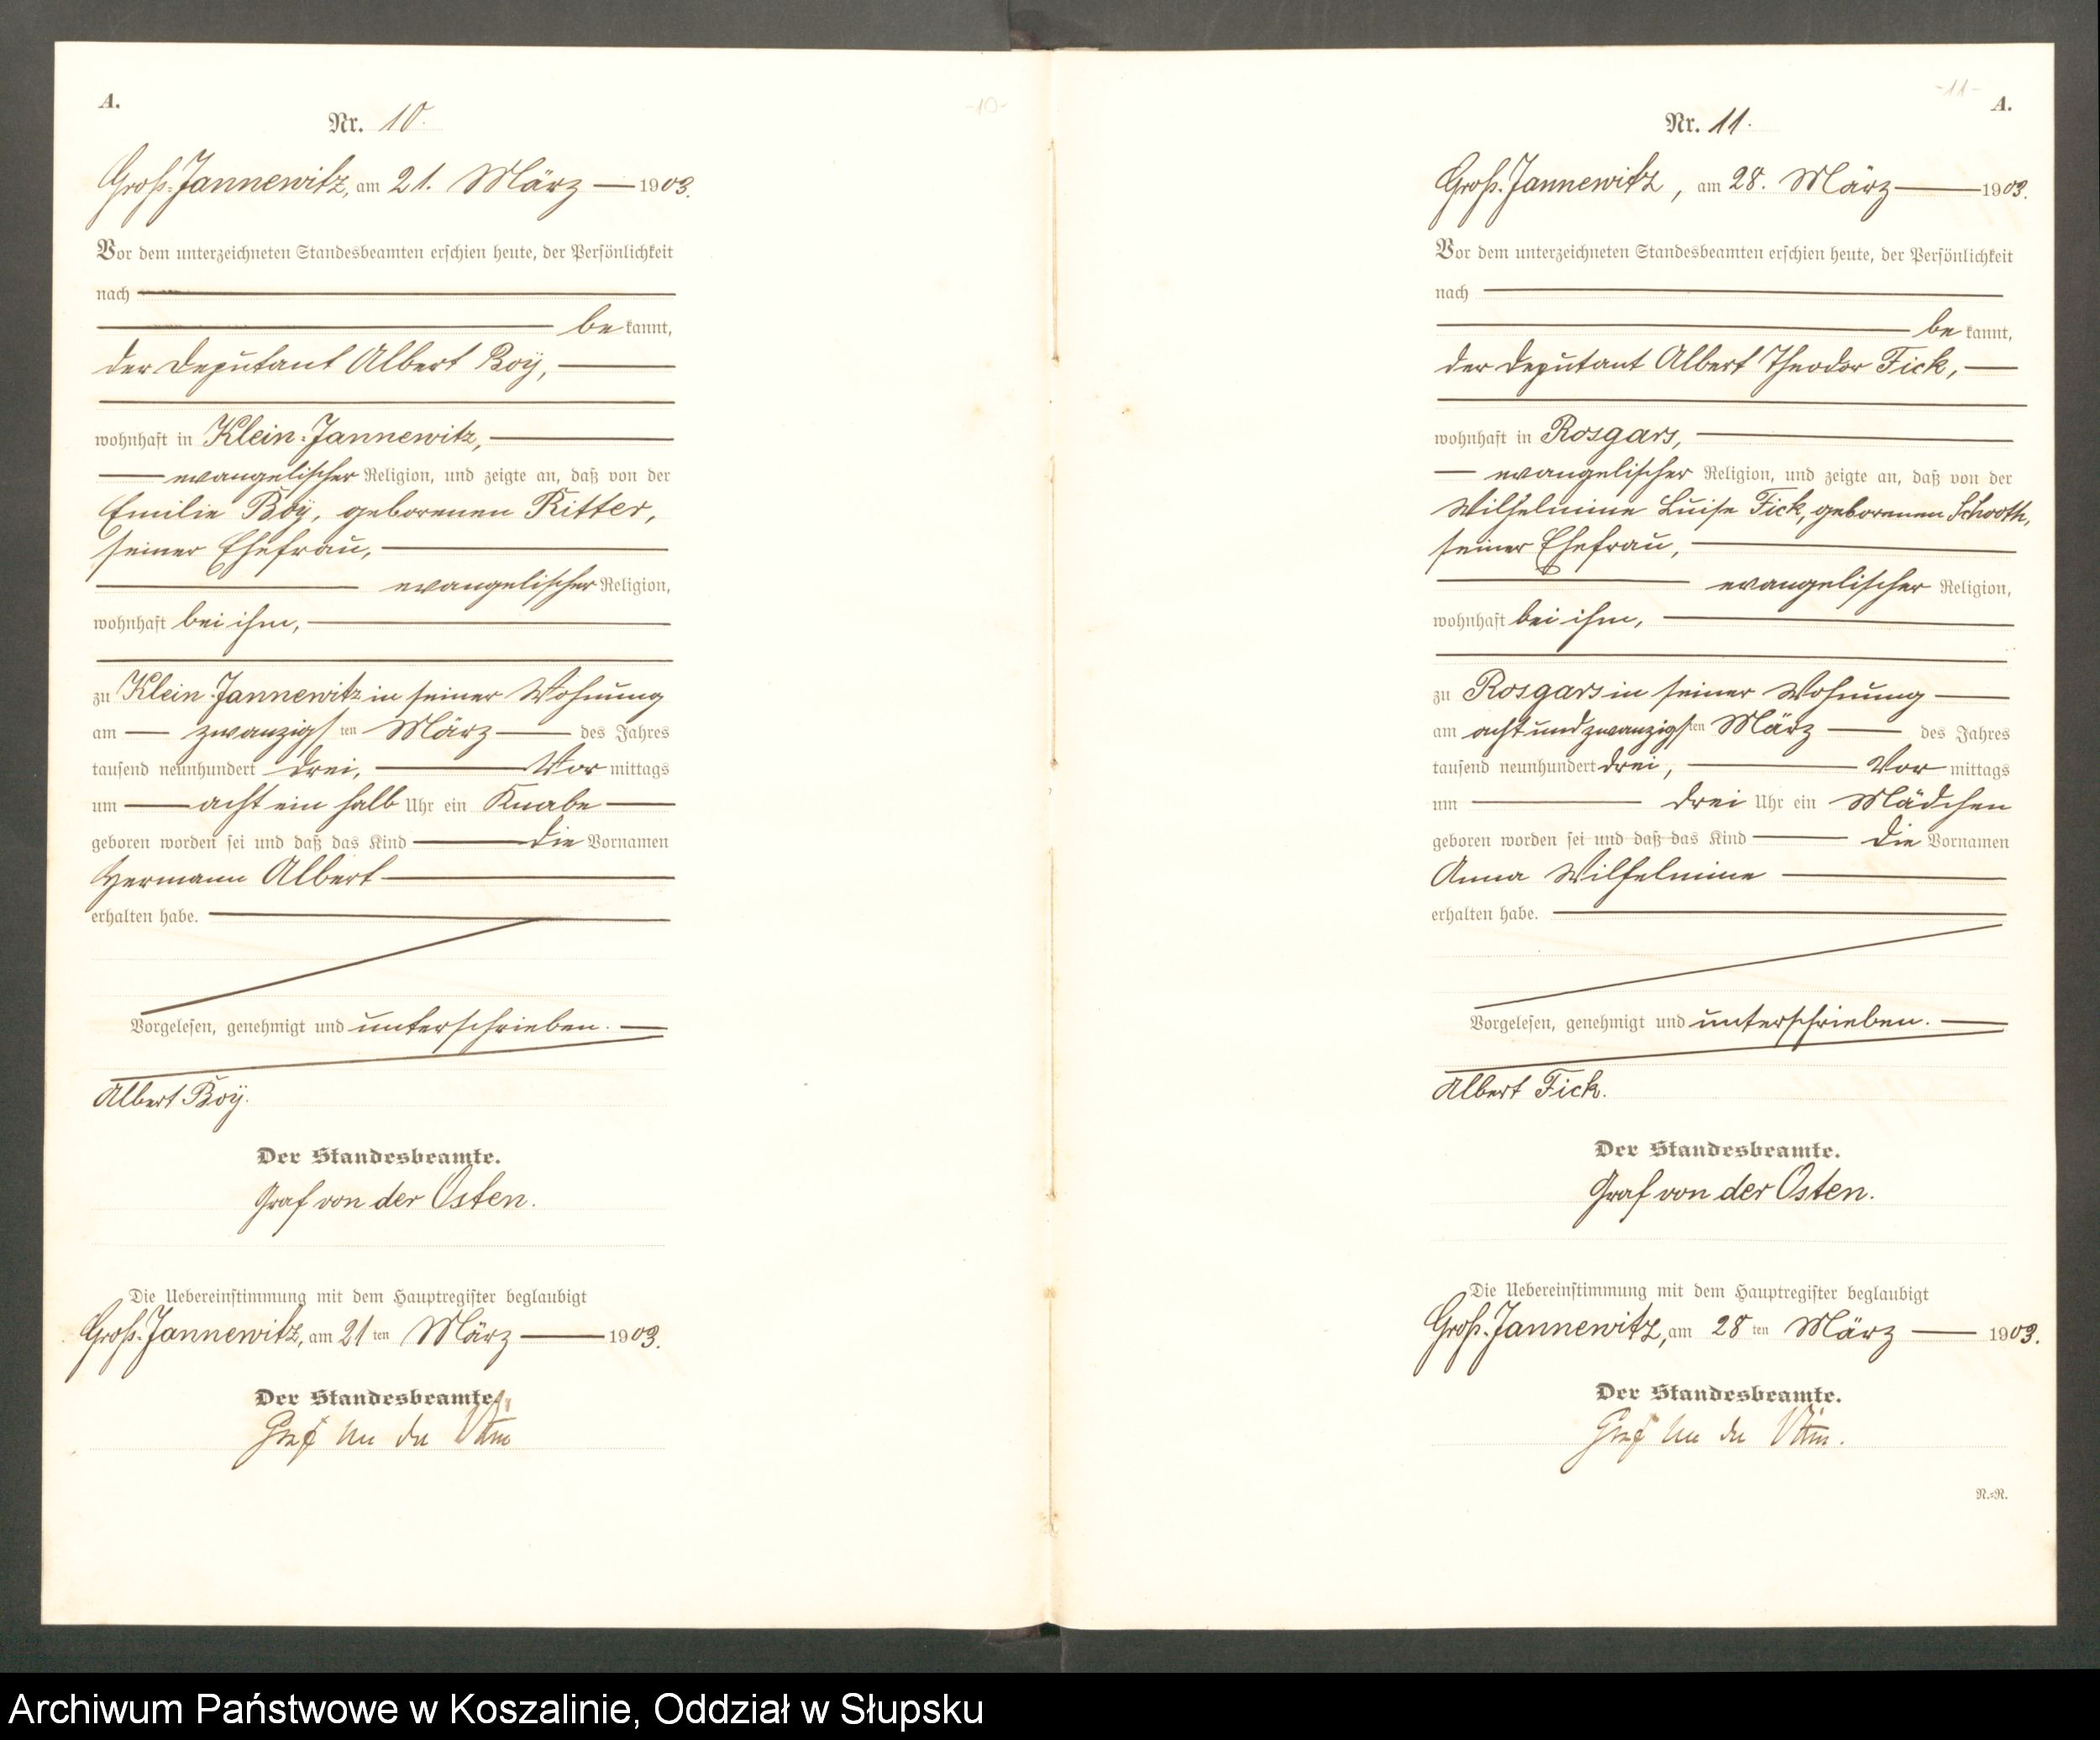 A.
Nr. 10.
Groß-Jannewitz, am 21. März — 1903.
Vor dem unterzeichneten Standesbeamten erschien heute, der Persönlichkeit
nach
bekannt,
der Deputant Albert Boÿ,
wohnhaft in Klein-Jannewitz,
evangelischer Religion, und zeigte an, daß von der
Emilie Boÿ, geborenen Ritter,
seiner Ehefrau,
evangelischer Religion,
wohnhaft bei ihm,
zu Klein-Jannewitz in seiner Wohnung
am — zwanzigsten März — des Jahres
tausend neunhundert drei, — Vormittags
um — acht ein halb Uhr ein Knabe —
geboren worden sei und daß das Kind — die Vornamen
Hermann Albert —
erhalten habe.
Vorgelesen, genehmigt und unterschrieben. —
Albert Boÿ.
Der Standesbeamte.
Graf von der Osten.
Die Uebereinstimmung mit dem Hauptregister beglaubigt
Groß-Jannewitz, am 21ten März — 1903.
Der Standesbeamte.
Graf von der Osten
-10-
-11-
A.
Nr. 11.
Groß-Jannewitz, am 28. März — 1903.
Vor dem unterzeichneten Standesbeamten erschien heute, der Persönlichkeit
nach
bekannt,
der Deputant Albert Theodor Fick,
wohnhaft in Rosgars,
evangelischer Religion, und zeigte an, daß von der
Wilhelmine Luise Fick, geborenen Schooth,
seiner Ehefrau,
evangelischer Religion,
wohnhaft bei ihm,
zu Rosgars in seiner Wohnung —
am achtundzwanzigsten März — des Jahres
tausend neunhundert drei, — Vormittags
um — drei Uhr ein Mädchen
geboren worden sei und daß das Kind — die Vornamen
Anna Wilhelmine —
erhalten habe.
Vorgelesen, genehmigt und unterschrieben. —
Albert Fick.
Der Standesbeamte.
Graf von der Osten.
Die Uebereinstimmung mit dem Hauptregister beglaubigt
Groß-Jannewitz, am 28ten März — 1903.
Der Standesbeamte.
Graf von der Osten.
N.=R.
Archiwum Państwowe w Koszalinie, Oddział w Słupsku